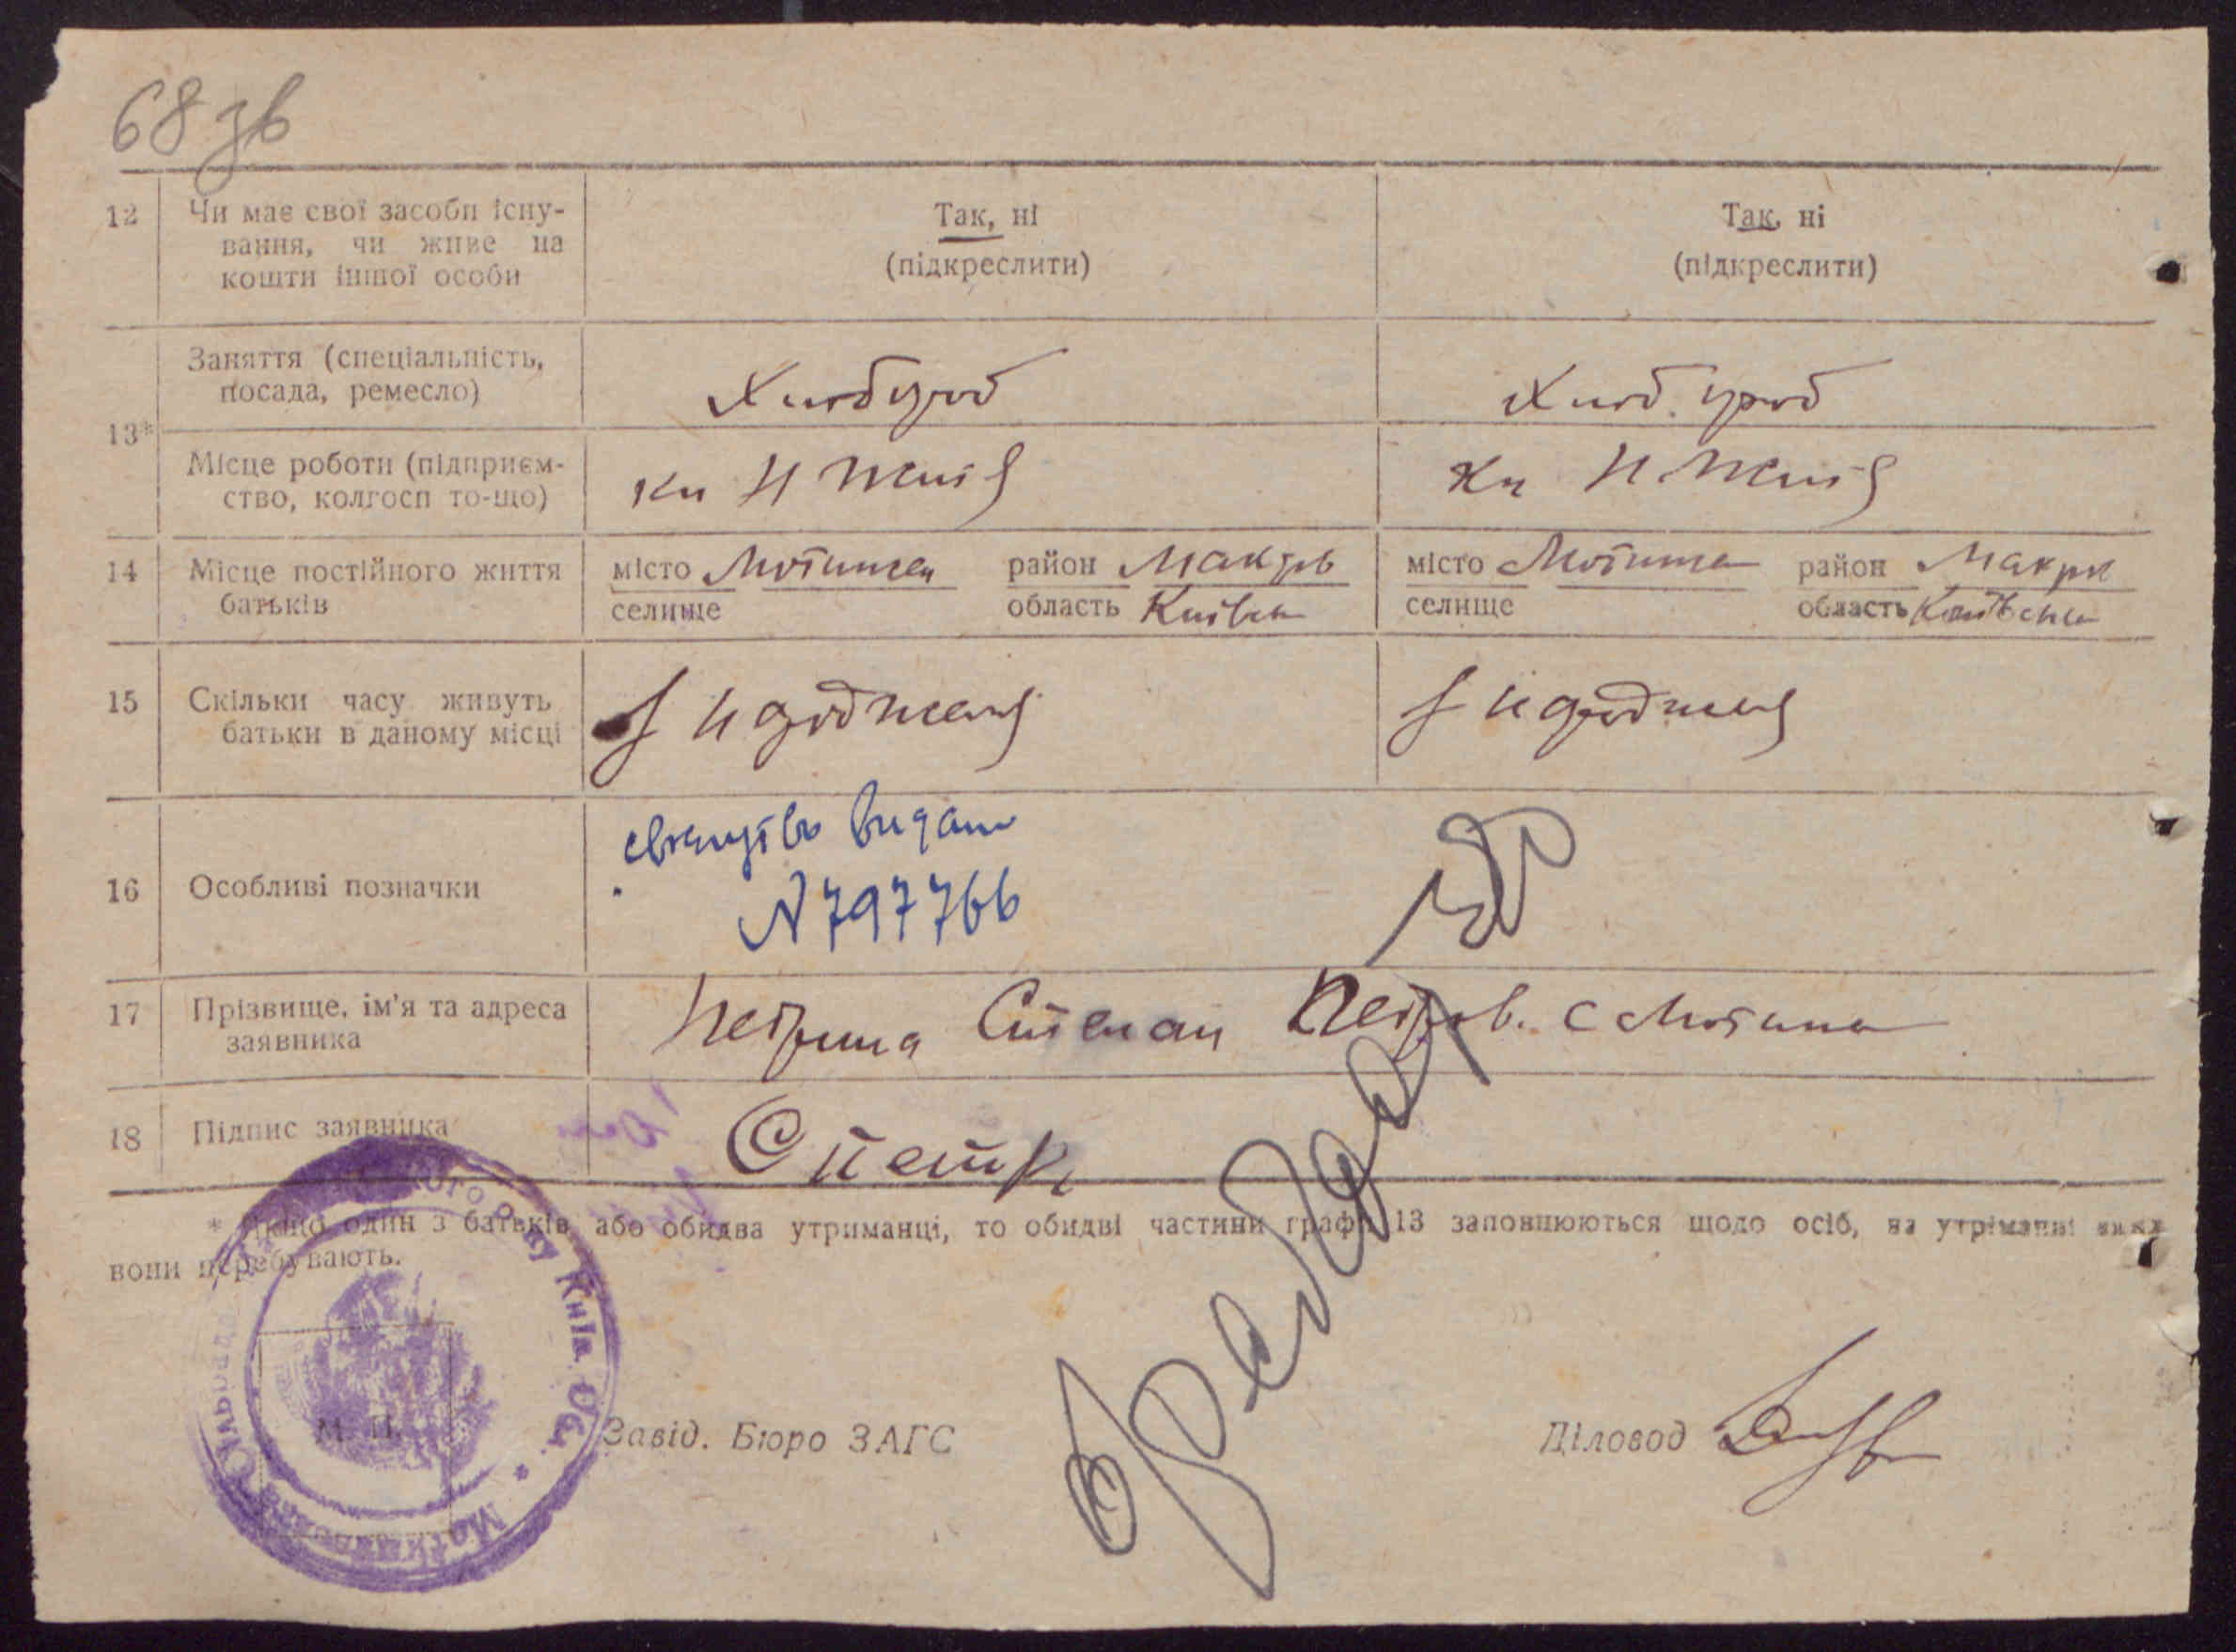 68 зв
12 Чи має свої засоби існу-
вання, чи живе на
кошти іншої особи
Так, ні
(підкреслити)
Так, ні
(підкреслити)
13*
Заняття (спеціальність,
посада, ремесло)
Хлібороб
Хлібороб
Місце роботи (підприєм-
ство, колгосп то-що)
14 Місце постійного життя
батьків
місто Мотижен район Макарів
селище область Київськ
місто Мотижен район Макарів
селище область Київська
15 Скільки часу живуть
батьки в даному місці
З народження
З народження
16 Особливі позначки
свідоцтво видано
N 797766
17 Прізвище, ім'я та адреса
заявника
Степан Петров. с Мотижен
18 Підпис заявника
* Якщо один з батьків або обидва утриманці, то обидві частини графи 13 заповнюються щодо осіб, на утриманні яких
вони перебувають.
М. П.
Завід. Бюро ЗАГС
Діловод